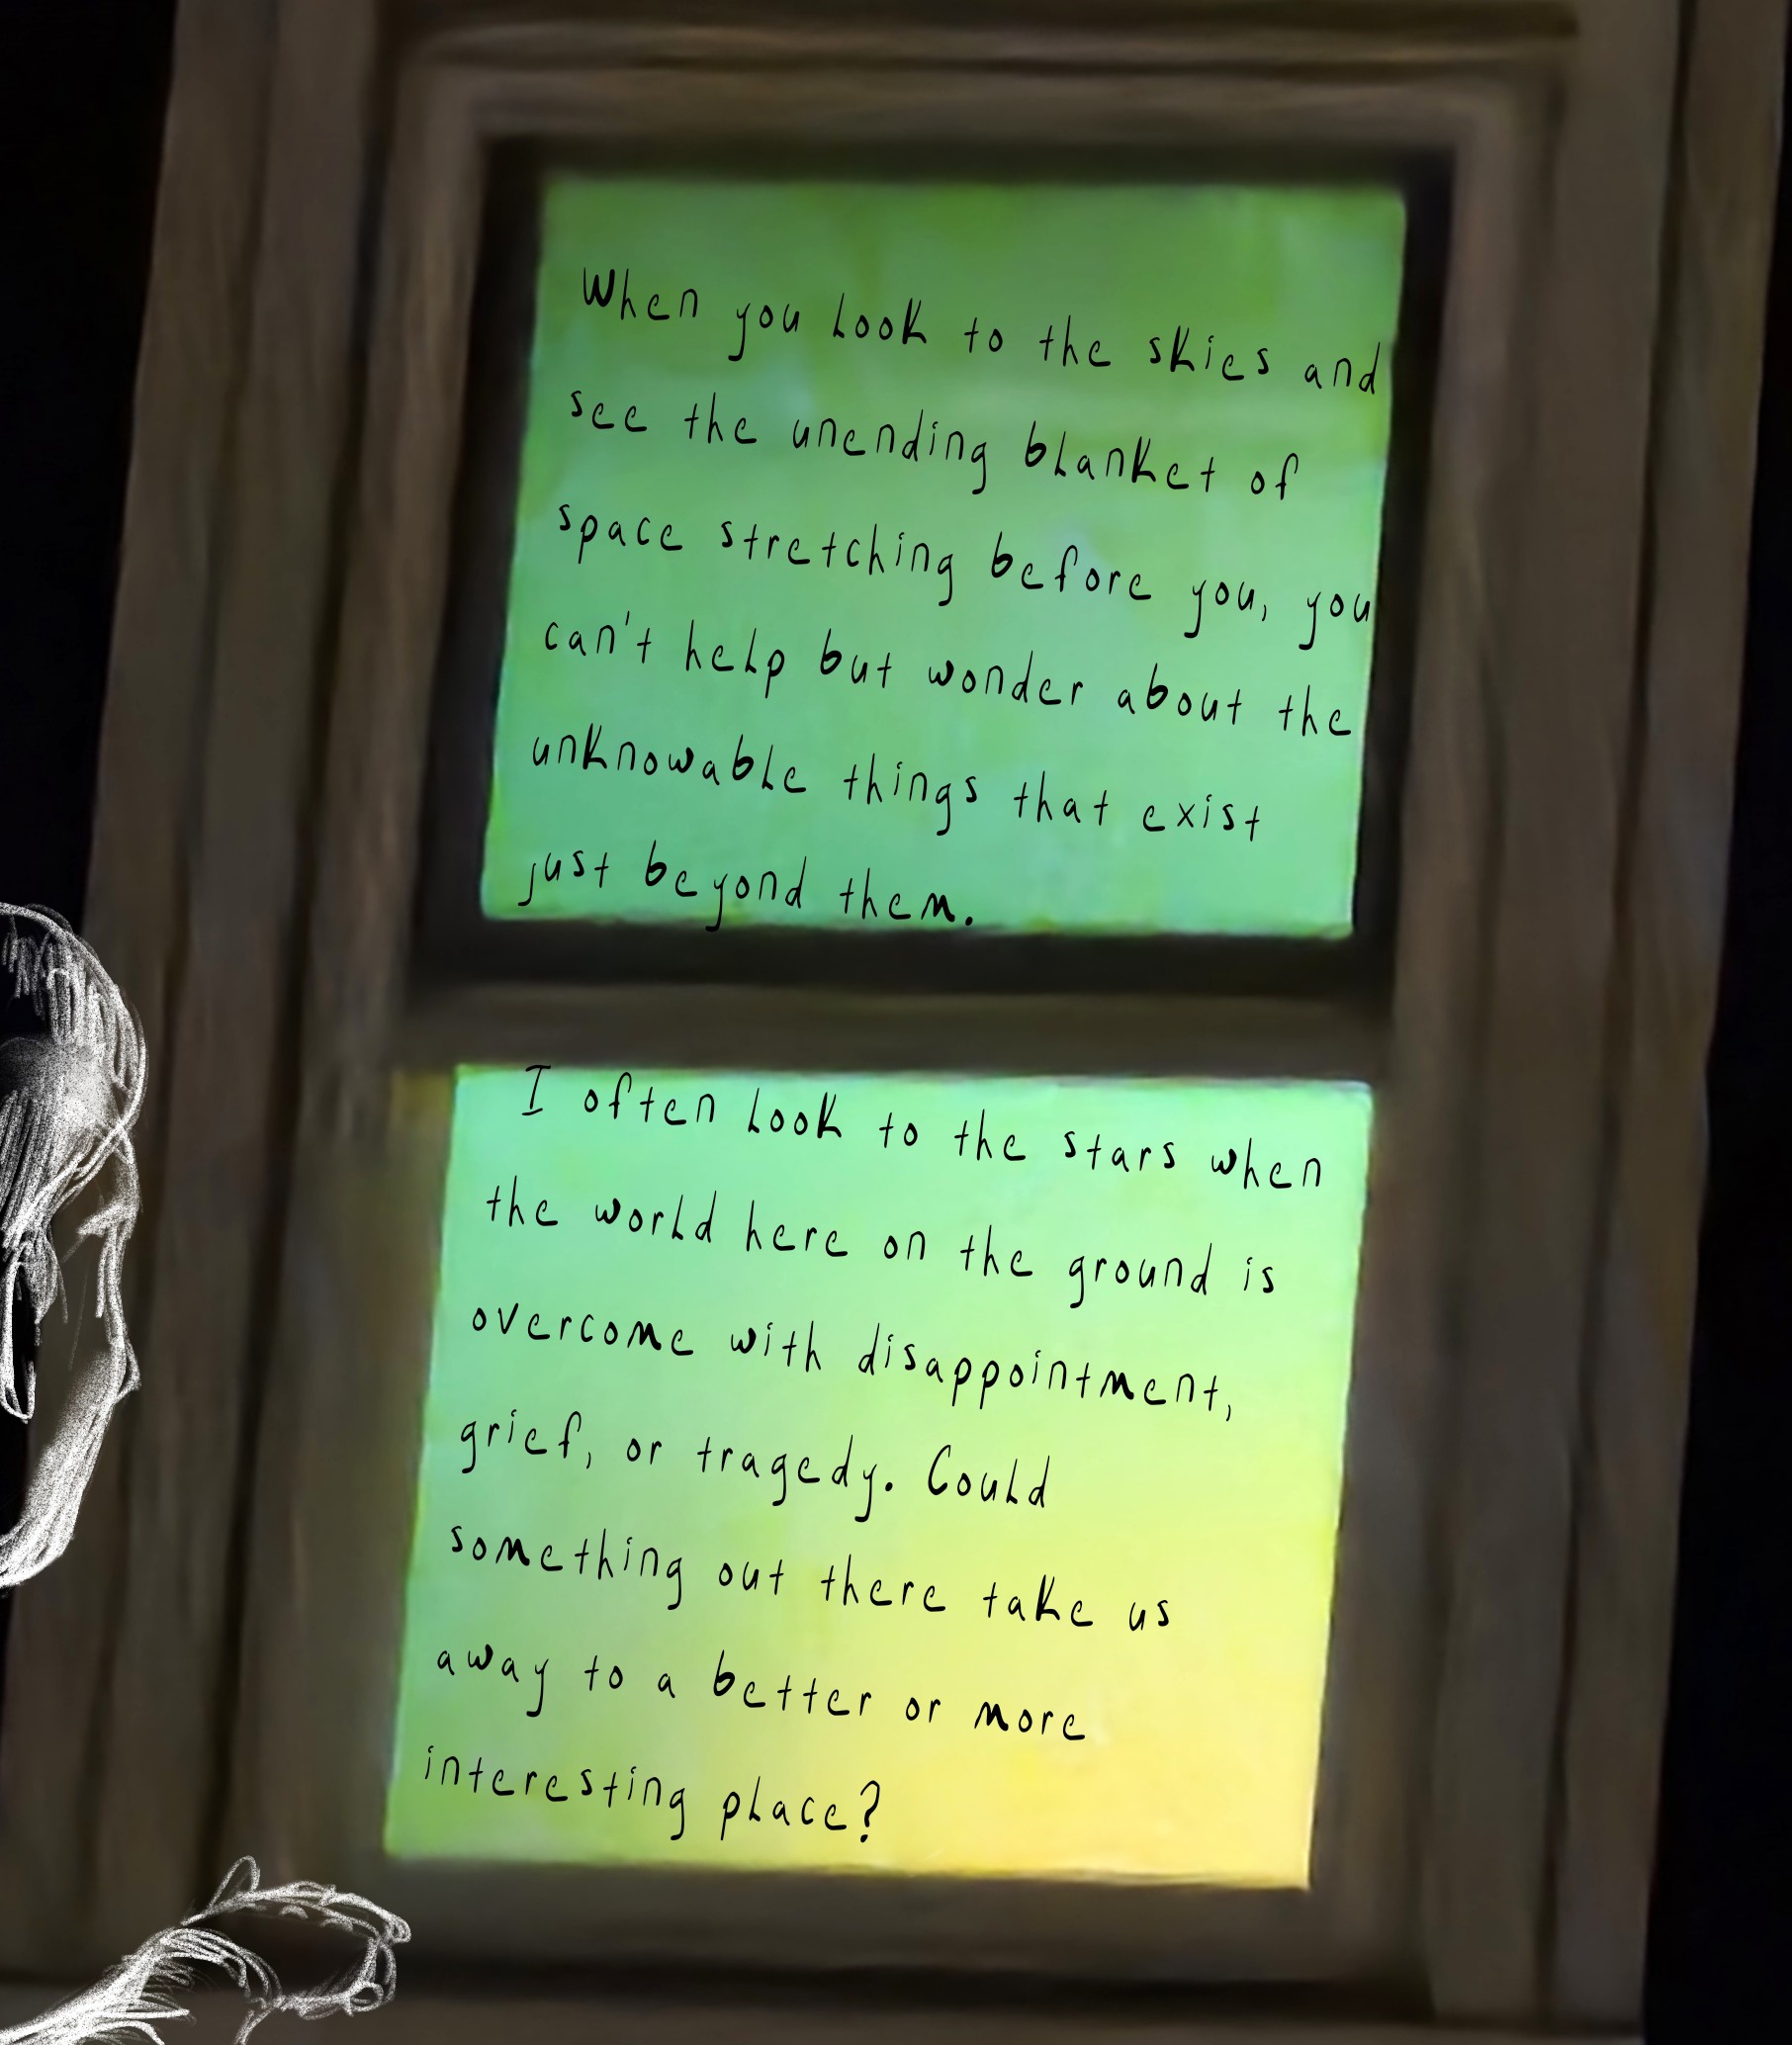 When you look to the skies and
see the unending blanket of
space stretching before you, you
can't help but wonder about the
unknowable things that exist
just beyond them.
I often look to the stars when
the world here on the ground is
overcome with disappointment,
grief, or tragedy. Could
something out there take us
away to a better or more
interesting place?